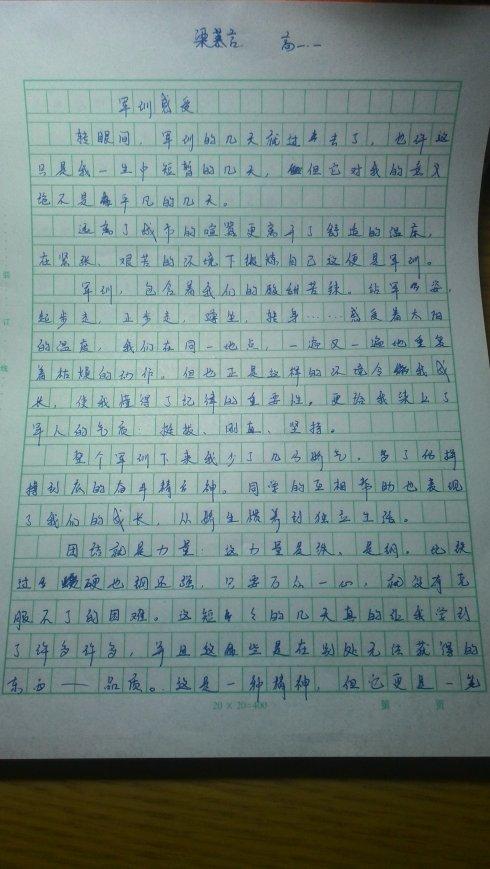 梁慕言 高一.一
军训感受
转眼间，军训的几天就过去了，也许这
只是我一生中短暂的几天，但它对我的意义
绝不是平凡的几天。
远离了城市的喧嚣更离开了舒适的温床，
在紧张、艰苦的环境下锻炼自己这便是军训。
军训，包含着我们的酸甜苦辣。站军姿，
起步走，正步走，蹲坐，转身……感受着太阳
的温度，我们在同一地点，一遍又一遍地重复
着枯燥的动作。但也正是这样的环境令我成
长，使我懂得了纪律的重要性。更给我染上了
军人的气质：挺拔、刚直、坚持。
整个军训下来我少了几分娇气，多了份拼
搏到底的奋斗精神。同学的互相帮助也表现
了我们的成长，从娇生惯养到独立生活。
团结就是力量：这力量是铁，是钢。比铁
还硬比钢还强，只要万众一心，就没有克
服不了的困难。这短的几天真的让我学到
了许多许多，并且这些是在别处无法获得的
东西——品质。这是一种精神，但它更是一笔
20×20=400 第 页
装
订
线